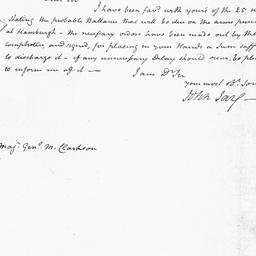 I have been fav.d with yours of the 25 u
stating the probable Ballance that will be due on the arms
at Hamburgh - the necessary orders have been made out by the
comptroller, and signed, for placing in your Hands a Sum suff
to discharge it - if any unnecessary Delay should occur, be pl
to inform me of it —
I am D.r Sir
your most ob.t Serv
John Jay —
Maj.r Gen.l M. Clarkson